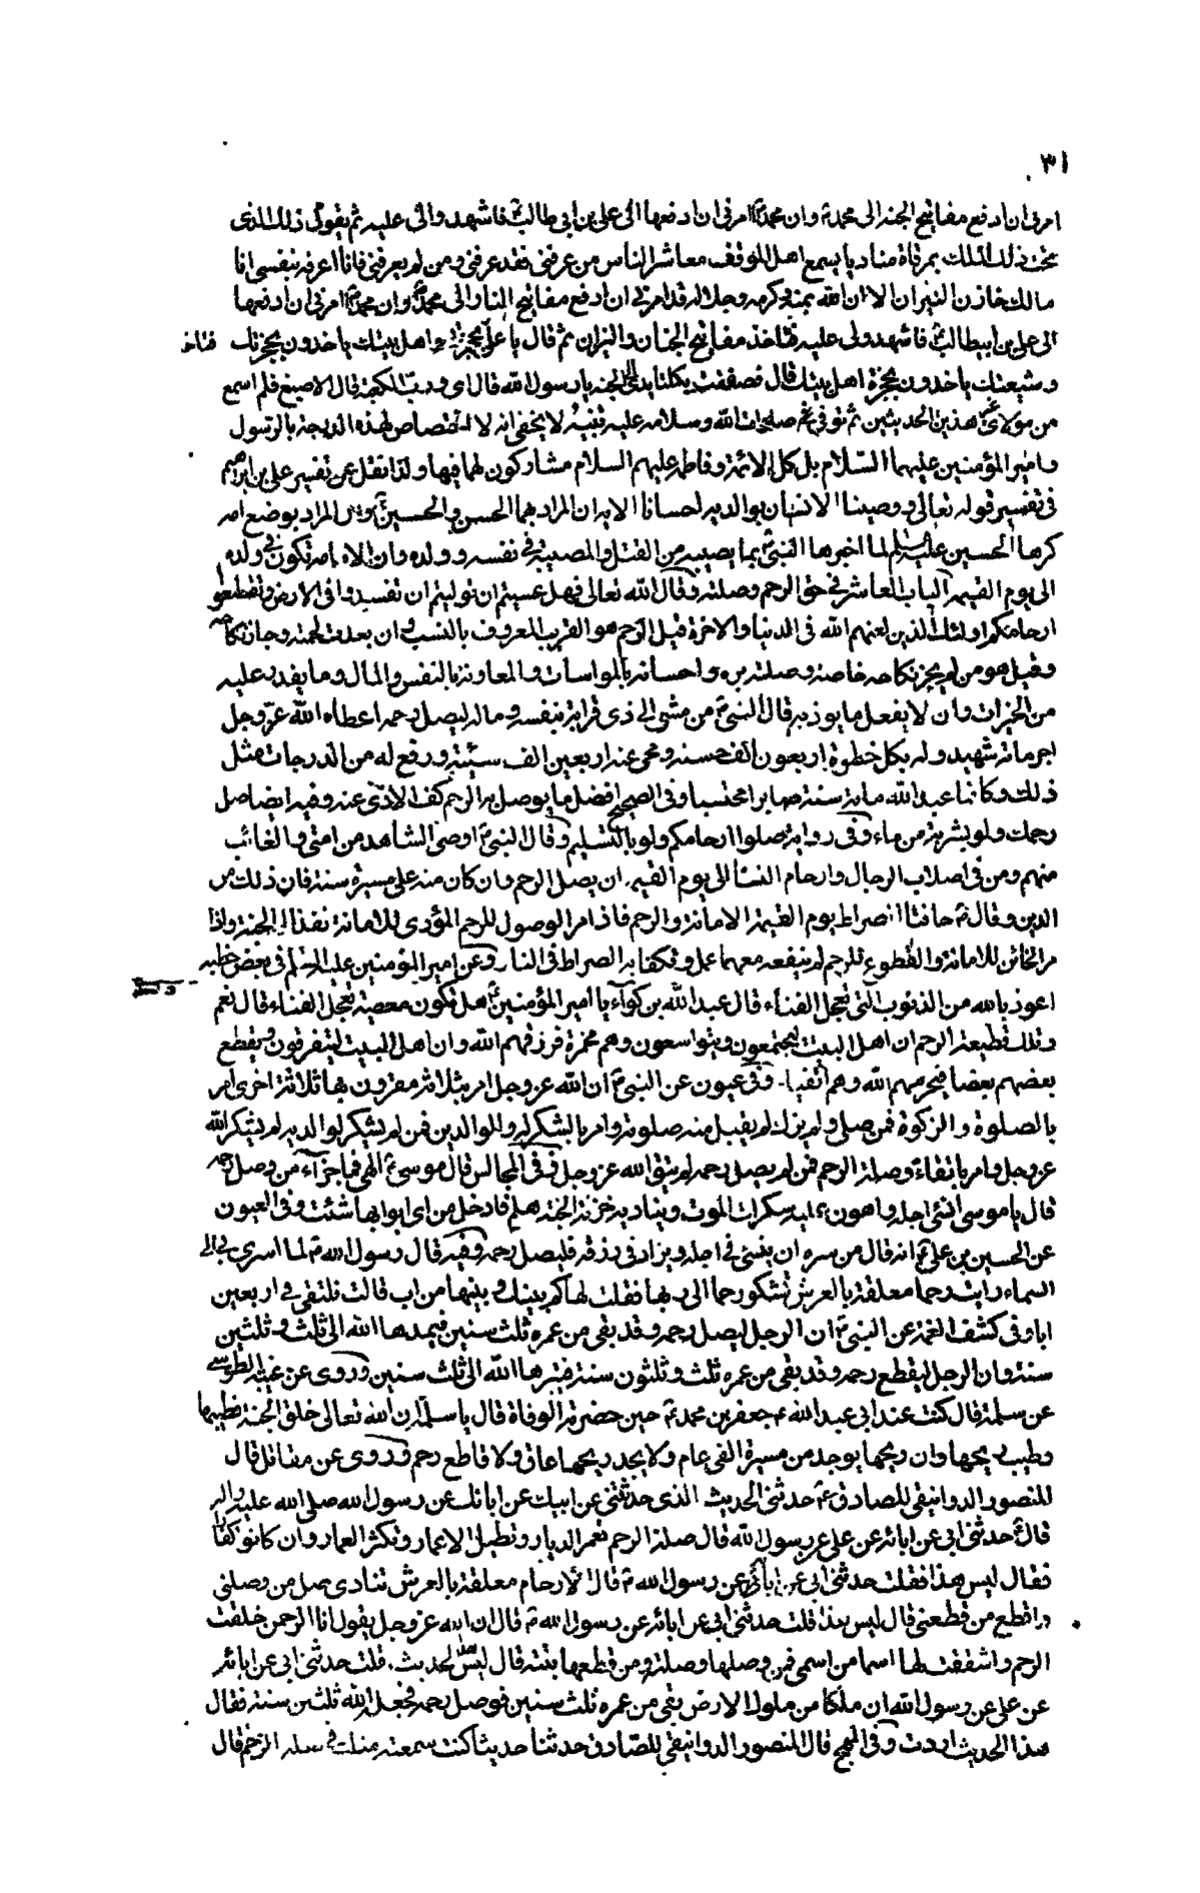 ٣١
امرنى ان ادفع مفاتيح الجنه الى محمد ص وان محمد ص امرنى ان ادفعها الى على بن ابى طالب ع فاشهدوا لى عليه ثم يقول ذلك الذى
تحت ذلك الملك بمرقاة مناديا يسمع اهل الموقف معاشر الناس من عرفنى فقد عرفنى ومن لم يعرفنى فانا اعرفه بنفسى انا
مالك خازن النيران الا ان الله بمنه وكرمه وجلاله قد امرنى ان ادفع مفاتيح النار الى محمد ص وان محمد ص امرنى ان ادفعها
الى على بن ابيطالب ع فاشهدوا لى عليه فتاخذ مفاتيح الجنان والنيران ثم قال يا على بحجزتى واهل بيتك ياخذون بحجزتك فتاخذ
وشيعتك ياخذون بحجزة اهل بيتك قال فصفقت بكلتا يدى الى الجنه يا رسول الله قال اى ورب الكعبة قال الاصبغ فلم اسمع
من مولاى ع هذين الحديثين ثم توفى ع صلوات الله وسلامه عليه تنبيه لا يخفى انه لا اختصاص لهذه الدرجة بالرسول
وامير المؤمنين عليهما السلام بل كل الائمة وفاطمه عليهم السلام مشاركون لهما فيها ولذا نقل عن تفسير على بن ابراهيم
فى تفسير قوله تعالى ووصينا الانسان بوالديه احسانا الايه ان المراد بهما الحسن والحسين ع وان المراد بوضع امه
كرها الحسين عليه السلم لما اخبرها النبى ص بما يصيبه من القتل والمصيبة فى نفسه وولده وان الامامه تكون فى ولده
الى يوم القيمه الباب العاشر فى حق الرحم وصلته وقال الله تعالى فهل عسيتم ان توليتم ان تفسدوا فى الارض وتقطعوا
ارحامكم اولئك الذين لعنهم الله فى الدنيا والاخرة قيل الرحم هو القريب المعروف بالنسب وان بعدت لحمته وجاز نكاحه
وقيل هو من لم يجز نكاحه خاصة وصلته بره واحسانه بالمواسات والمعاونة بالنفس والمال وما يفد به عليه
من الخيرات وان لا يفعل ما يوذيه قال النبى ص من مشى الى ذى قرابة بنفسه وماله ليصل رحمه اعطاه الله عز وجل
اجر مائة شهيد وله بكل خطوة اربعون الف حسنة ومحى عنه اربعين الف سيئة ورفع له من الدرجات مثل
ذلك وكانما عبد الله مائة سنة صابرا محتسبا وفى الصحيح افضل ما يوصل به الرحم كف الاذى عنه وفيه ايضا صل
رحمك ولو بشربة من ماء وفى رواية صلوا ارحامكم ولو بالتسليم وقال النبى ص اوصى الشاهد من امتى والغائب
منهم ومن فى اصلاب الرجال وارحام النساء الى يوم القيمه ان يصل الرحم وان كان منه على مسيرة سنة فان ذلك من
الدين وقال ص حافتا الصراط يوم القيمة الامانة والرحم فاذا مر الوصول للرحم المؤدى للامانة نفذ الى الجنة واذا
مر الخائن للامانة والقطوع للرحم لم ينفعه معهما عمل وتكفا به الصراط فى النار وعن امير المؤمنين عليه السلم فى بعض خطبه
اعوذ بالله من الذنوب التى تعجل الفناء قال عبد الله بن كواء يا امير المؤمنين اهل تكون معصية تعجل الفناء قال نعم
وتلك قطيعة الرحم ان اهل البيت ليجتمعون ويتواسعون وهم فجرة فرزقهم الله وان اهل البيت ليتفرقون ويقطع
بعضهم بعضا فيحرمهم الله وهم اتقيا وفى عيون عن النبى ص ان الله عز وجل امر بثلاثة مقرون بها ثلاثة اخرى امر
بالصلوة والزكوة فمن صلى ولم يزك لم يقبل منه صلوته وامر بالشكر له والوالدين فمن لم يشكر الوالديه لم يشكر الله
عز وجل وامر باتقاء وصلة الرحم فمن لم يصل رحمه لم يتق الله عز وجل وفى المجالس قال موسى ع الهى فما جزاء من وصل رحمه
قال يا موسى انسئ اجله واهون عليه سكرات الموت ويناديه خزنة الجنة هلم فادخل من اى ابوابها شئت وفى العيون
عن الحسين بن على ع انه قال من سره ان ينسئ فى اجله ويزاد فى رزقه فليصل رحمه وفيه قال رسول الله ص لما اسرى بى الى
السماء رايت رحما معلقة بالعرش تشكو رحما الى ربها فقلت لها كم بينك وبينها من اب قالت نلتقى فى اربعين
ابا وفى كشف الغمة عن النبى ص ان الرجل ليصل رحمه وقد بقى من عمره ثلث سنين فيمدها الله الى ثلث وثلثين
سنة وان الرجل ليقطع رحمه وقد بقى من عمره ثلث وثلثون سنة فيبترها الله الى ثلث سنين وروى عن غيبة الطوسى
عن سلمة قال كنت عند ابى عبد الله ع جعفر بن محمد ع حين حضرته الوفاة قال يا سلمة ان الله تعالى خلق الجنة فطيبها
وطيب ريحها وان ريحها يوجد من مسيرة الفى عام ولا يجد ريحها عاق ولا قاطع رحم وروى عن مقاتل قال
المنصور الدوانيقى للصادق ع حدثنى الحديث الذى حدثتنى عن ابيك عن ابائك عن رسول الله صلى الله عليه واله
قال ع حدثنى ابى عن ابائه عن على عن رسول الله قال صلة الرحم تعمر الديار وتطيل الاعمار وتكثر العمار وان كانوا كفارا
فقال ليس هذا فقلت حدثنى ابى عن ابائه عن رسول الله ص قال الارحام معلقة بالعرش تنادى صل من وصلنى
واقطع من قطعنى قال ليس هذا قلت حدثنى ابى عن ابائه عن رسول الله ص قال ان الله عز وجل يقول انا الرحمن خلقت
الرحم واشققت لها اسما من اسمى فمن وصلها وصلته ومن قطعها بتته قال ليس هذا الحديث قلت حدثنى ابى عن ابائه
عن على عن رسول الله ان ملكا من ملوك الارض بقى من عمره ثلث سنين فوصل رحمه فجعل الله ثلثين سنة فقال
هذا الحديث اردت وفى المهج قال المنصور الدوانيقى للصادق حدثنا حديثا كنت سمعته منك فى صلة الرحم قال